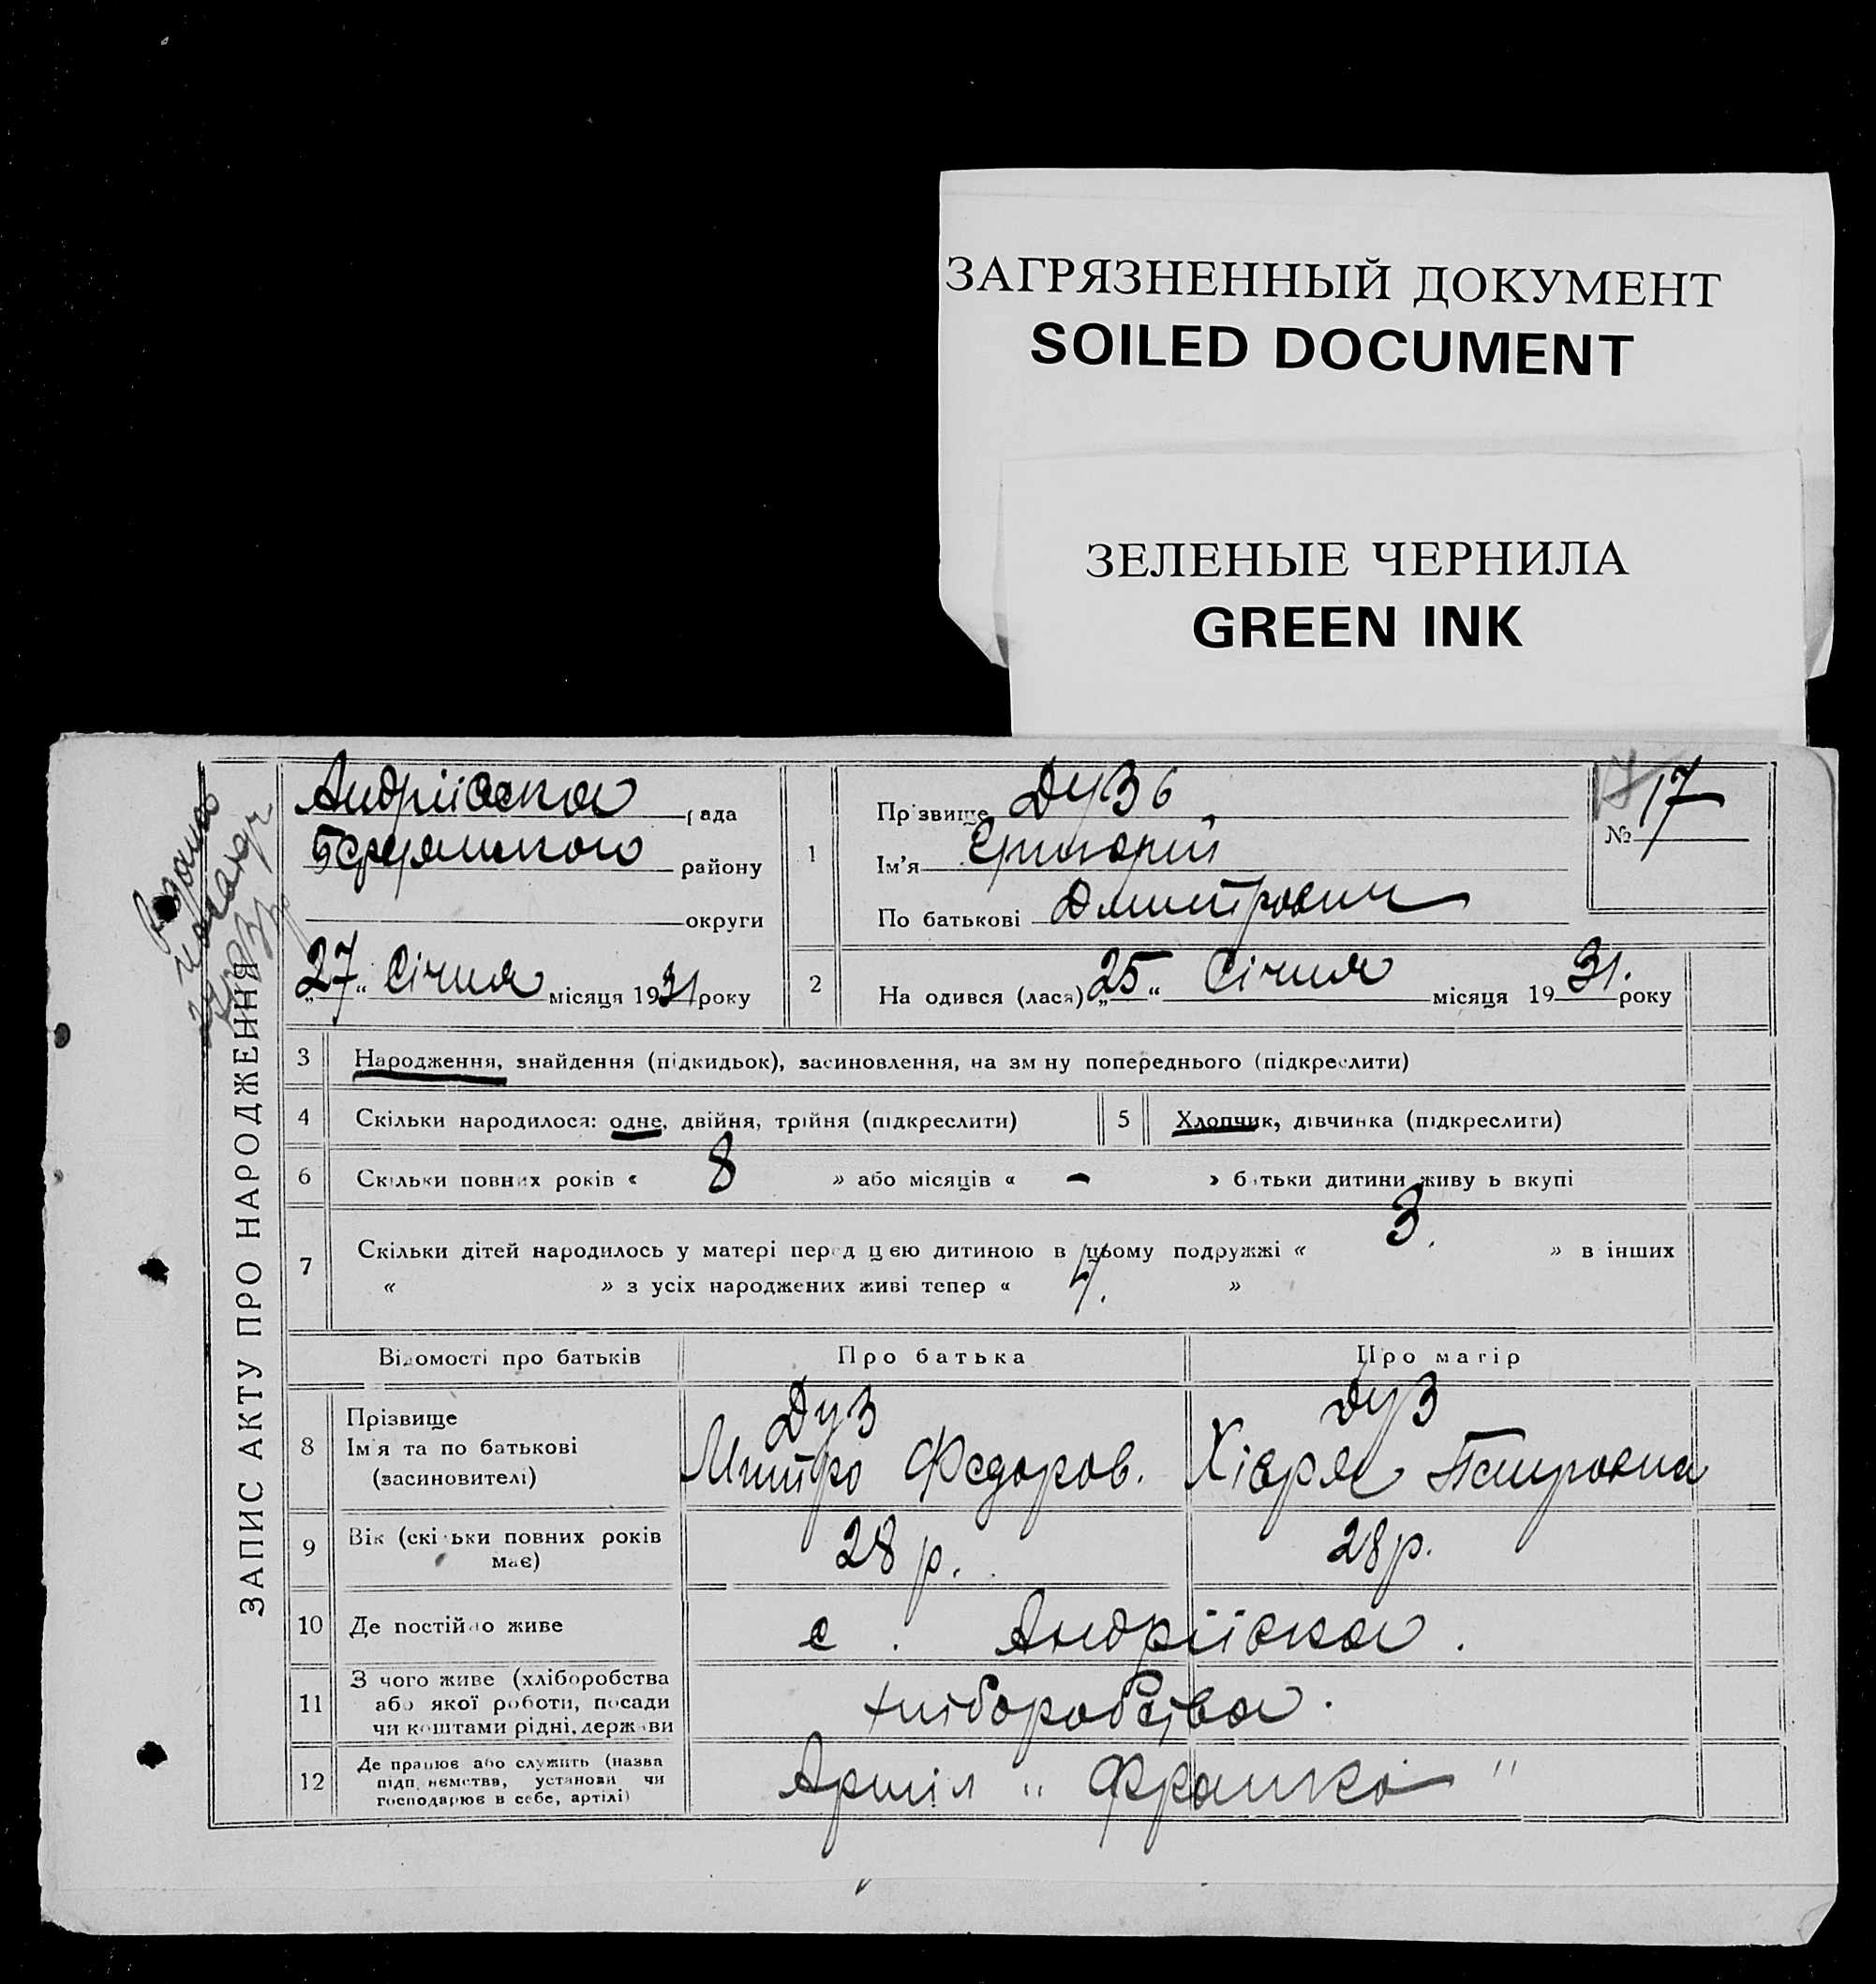 ЗАГРЯЗНЕННЫЙ ДОКУМЕНТ
SOILED DOCUMENT
ЗЕЛЕНЫЕ ЧЕРНИЛА
GREEN INK
ЗАПИС АКТУ ПРО НАРОДЖЕННЯ
Андріївка рада
району
округи
„27“ Січня місяця 1931 року
1
Прізвище Дузь
Ім'я Григорій
По батькові Дмитрович
№ 17
2
Народився (лася) „25“ Січня місяця 1931. року
3 Народження, знайдення (підкидьок), засиновлення, на зміну попереднього (підкреслити)
4 Скільки народилося: одне, двійня, трійня (підкреслити)
5 Хлопчик, дівчинка (підкреслити)
6 Скільки повних років « 8 » або місяців « - » батьки дитини живуть вкупі
7 Скільки дітей народилось у матері перед цією дитиною в цьому подружжі « 3. » в інших
« » з усіх народжених живі тепер « 4. »
Відомості про батьків Про батька Про матір
8 Прізвище
Ім'я та по батькові
(засиновителі)
Дуз
Митро Федоров.
Дуз
Хівря Петровна
9 Вік (скільки повних років має) 28 р. 28 р.
10 Де постійно живе с. Андріївка.
11 З чого живе (хліборобства
або якої роботи, посади
чи коштами рідні, держави
хліборобства.
12 Де працює або служить (назва
підприємства, установи чи
господарює в себе, артілі)
Артіл „Франко"